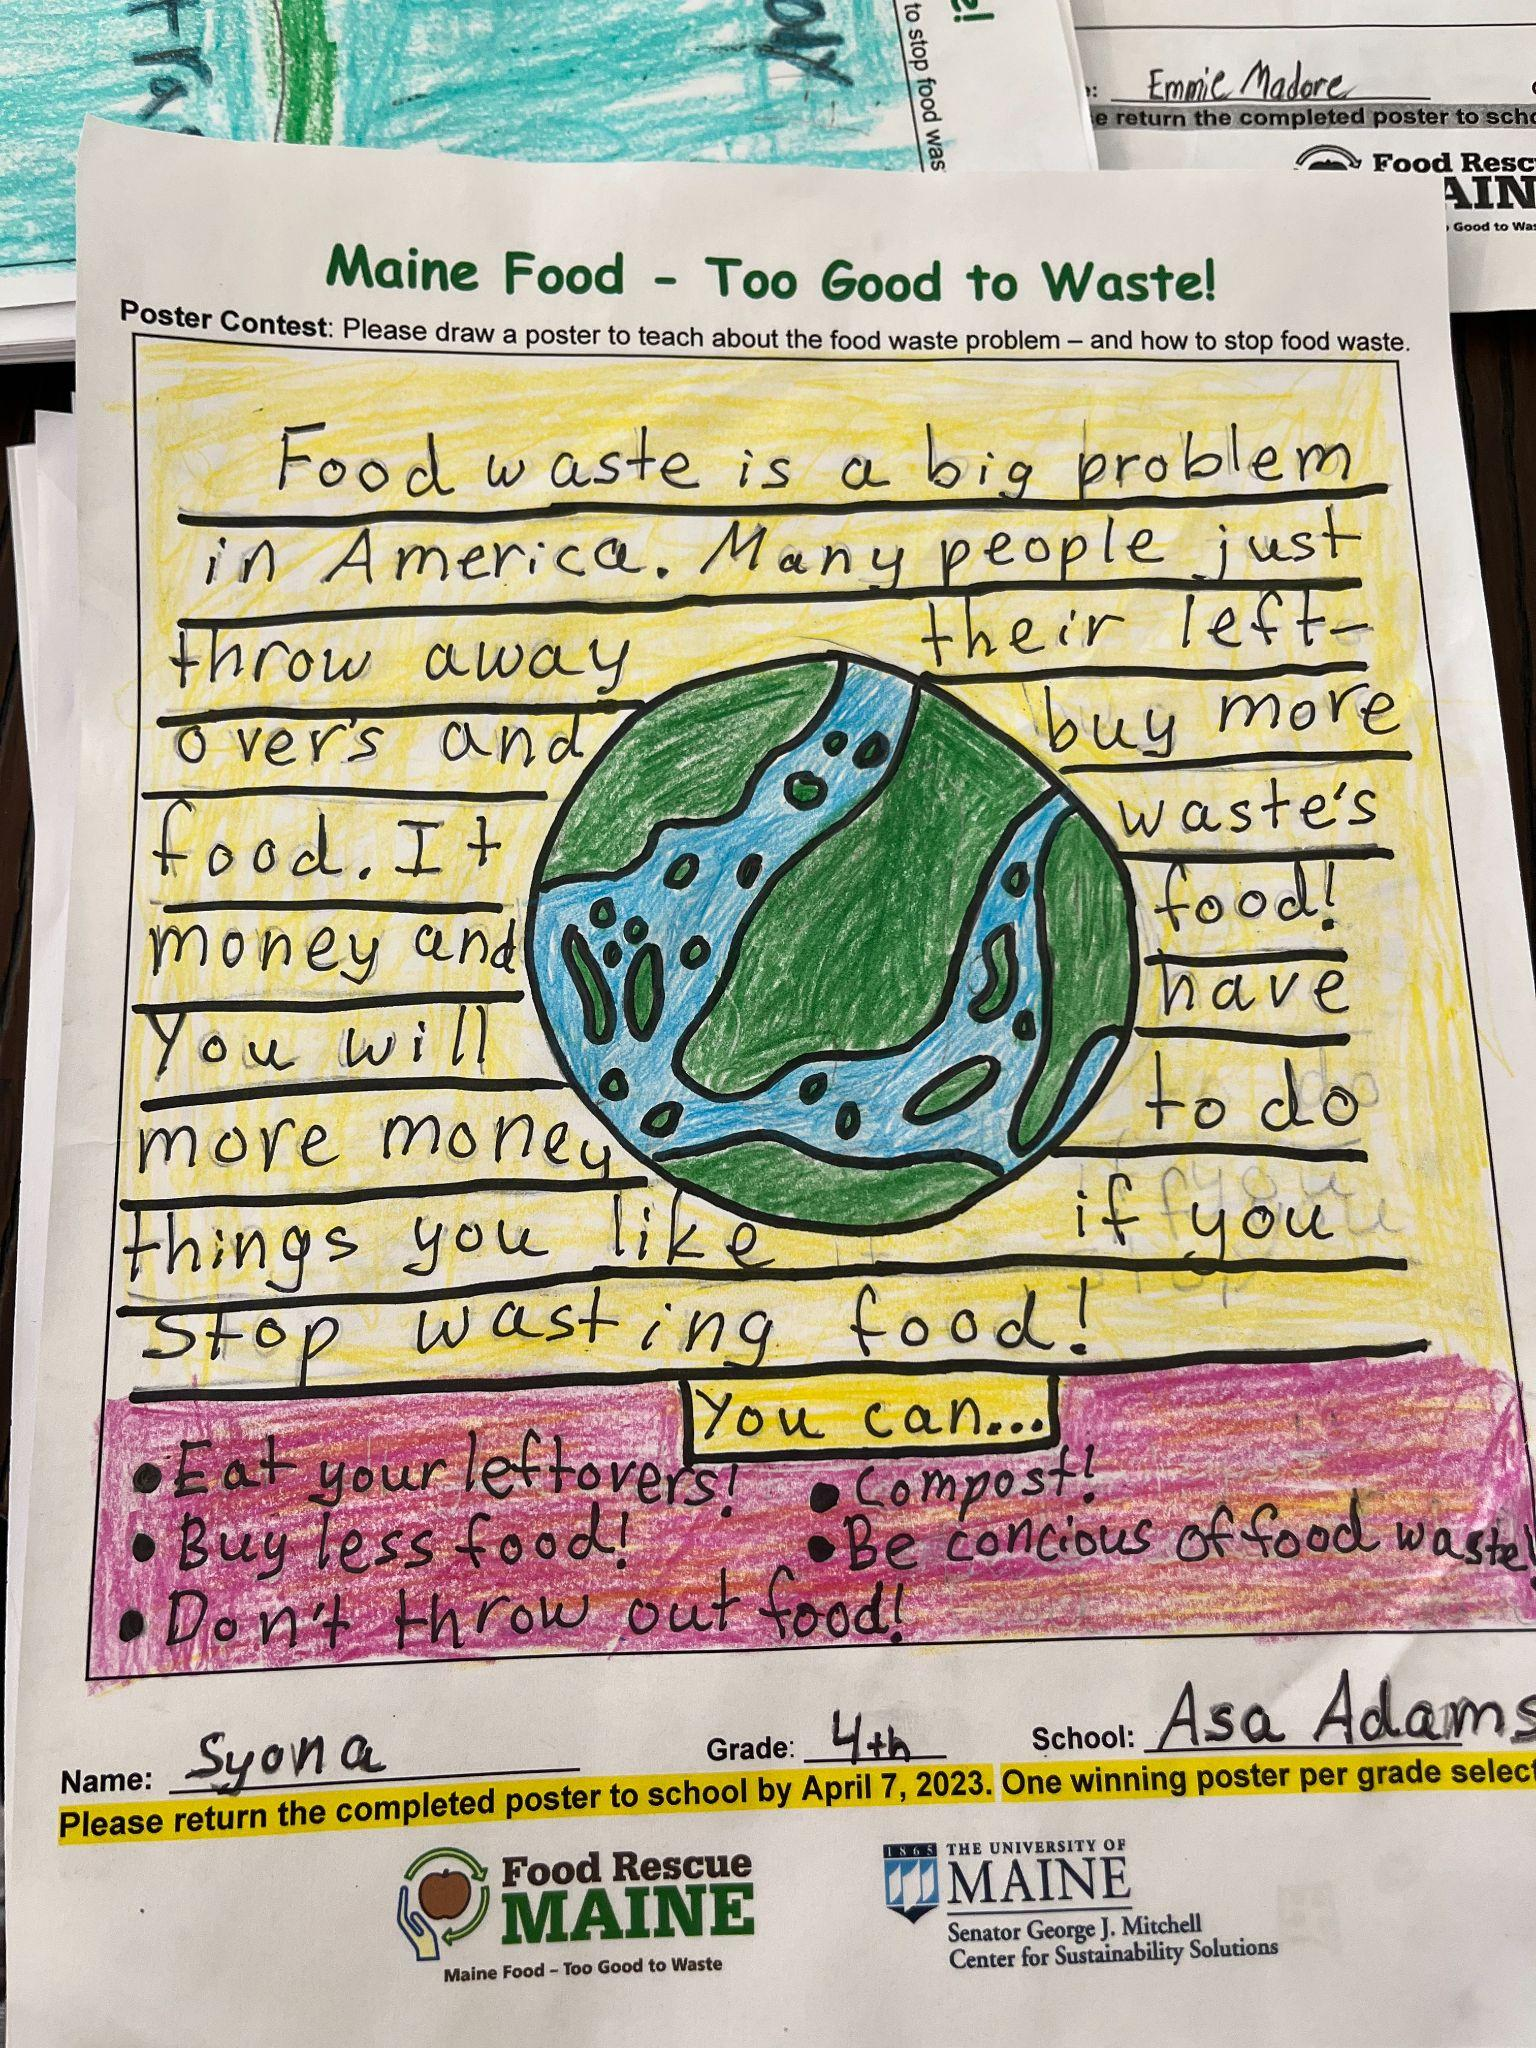 to stop food was
Emmie Madore
e return the completed poster to scho
Food Resc
AIN
Good to Was
Maine Food - Too Good to Waste!
Poster Contest: Please draw a poster to teach about the food waste problem – and how to stop food waste.
Food waste is a big problem
in America. Many people just
throw away their left-
overs and buy more
food. It waste's
money and food!
You will have
more money to do
things you like if you
stop wasting food!
You can...
• Eat your leftovers! • Compost!
• Buy less food! • Be concious of food waste!
• Don't throw out food!
Name: Syona Grade: 4th School: Asa Adams
Please return the completed poster to school by April 7, 2023. One winning poster per grade select
Food Rescue
MAINE
Maine Food – Too Good to Waste
1865 THE UNIVERSITY OF
MAINE
Senator George J. Mitchell
Center for Sustainability Solutions